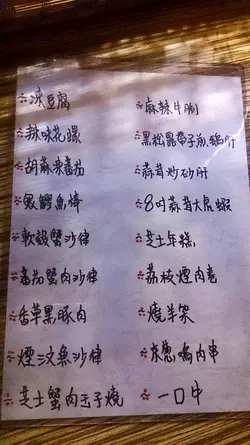 凍豆腐
辣味花螺
胡麻凍蕃茄
軟殼蟹沙律
蕃茄蟹肉沙律
香草黑豚肉
煙三文魚沙律
芝士蟹肉玉子燒
麻辣牛𦟌
黑松露帶子魚鵝肝
蒜茸炒砂肝
8吋蒜茸大虎蝦
芝士年糕
荔枝煙肉卷
燒羊架
京葱鴨肉串
一口牛